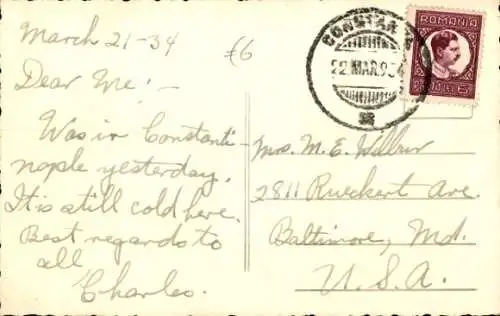 March 21-34
£6
Dear Me:-
Was in Constanti-
nople yesterday.
It is still cold here.
Best regards to
all
Charles.
CONSTAN
22 MAR. 93
ROMANIA
6
Mrs. M. E. Wilbur
2811 Rueckert Ave.
Baltimore, Md.
U.S.A.